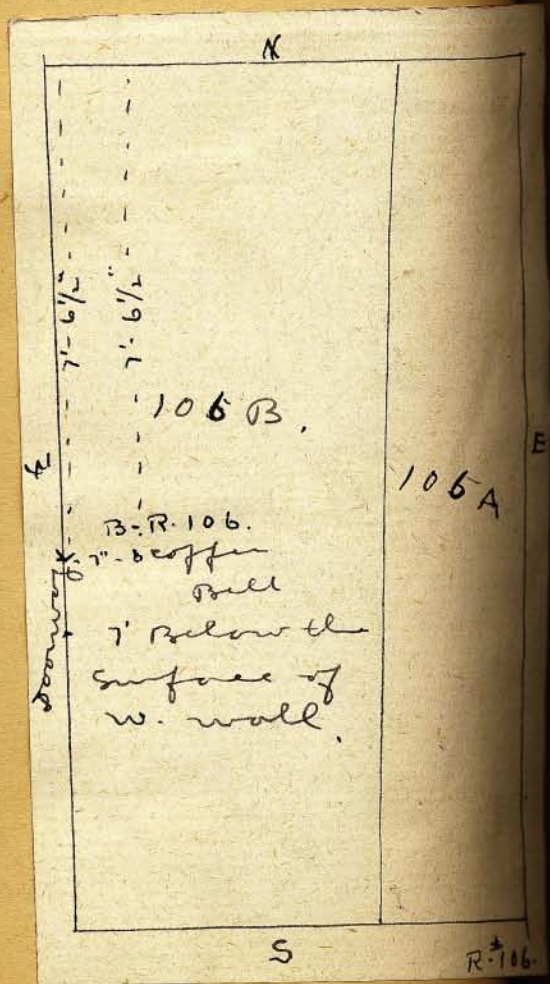 N
7'-6 1/2"
7'-6 1/2"
106 B.
106 A
E
B-R.106.
7"-
Bell
7' Below the
Surface of
w. wall.
Doorway
S
R#106.